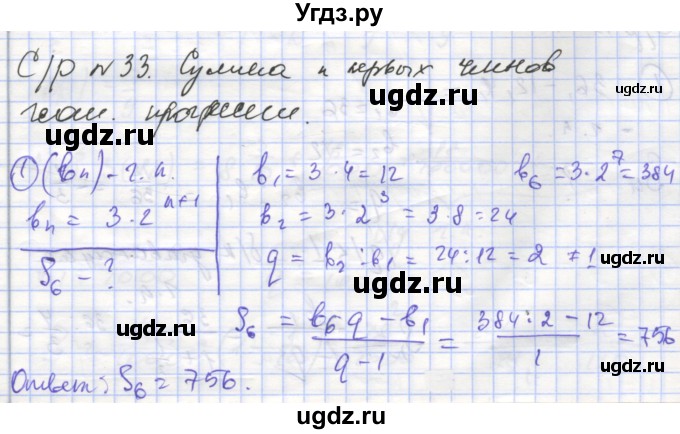 Угдз.ру
С/р №33. Сумма n первых членов
геом. прогрессии.
ugdz.ru ugdz.ru
① (bn) - г.п.
bn = 3·2^n+1
S6 - ?
b1 = 3·4 = 12
b2 = 3·2^3 = 3·8 = 24
q = b2 : b1 = 24 : 12 = 2 ≠ 1
b6 = 3·2^7 = 384
ugdz.ru ugdz.ru ugdz.ru
ugdz.ru ugdz.ru ugdz.ru
S6 = b6 q - b1 / q - 1 = 384 : 2 - 12 / 1 = 756
ugdz.ru ugdz.ru
Ответ: S6 = 756.
ugdz.ru